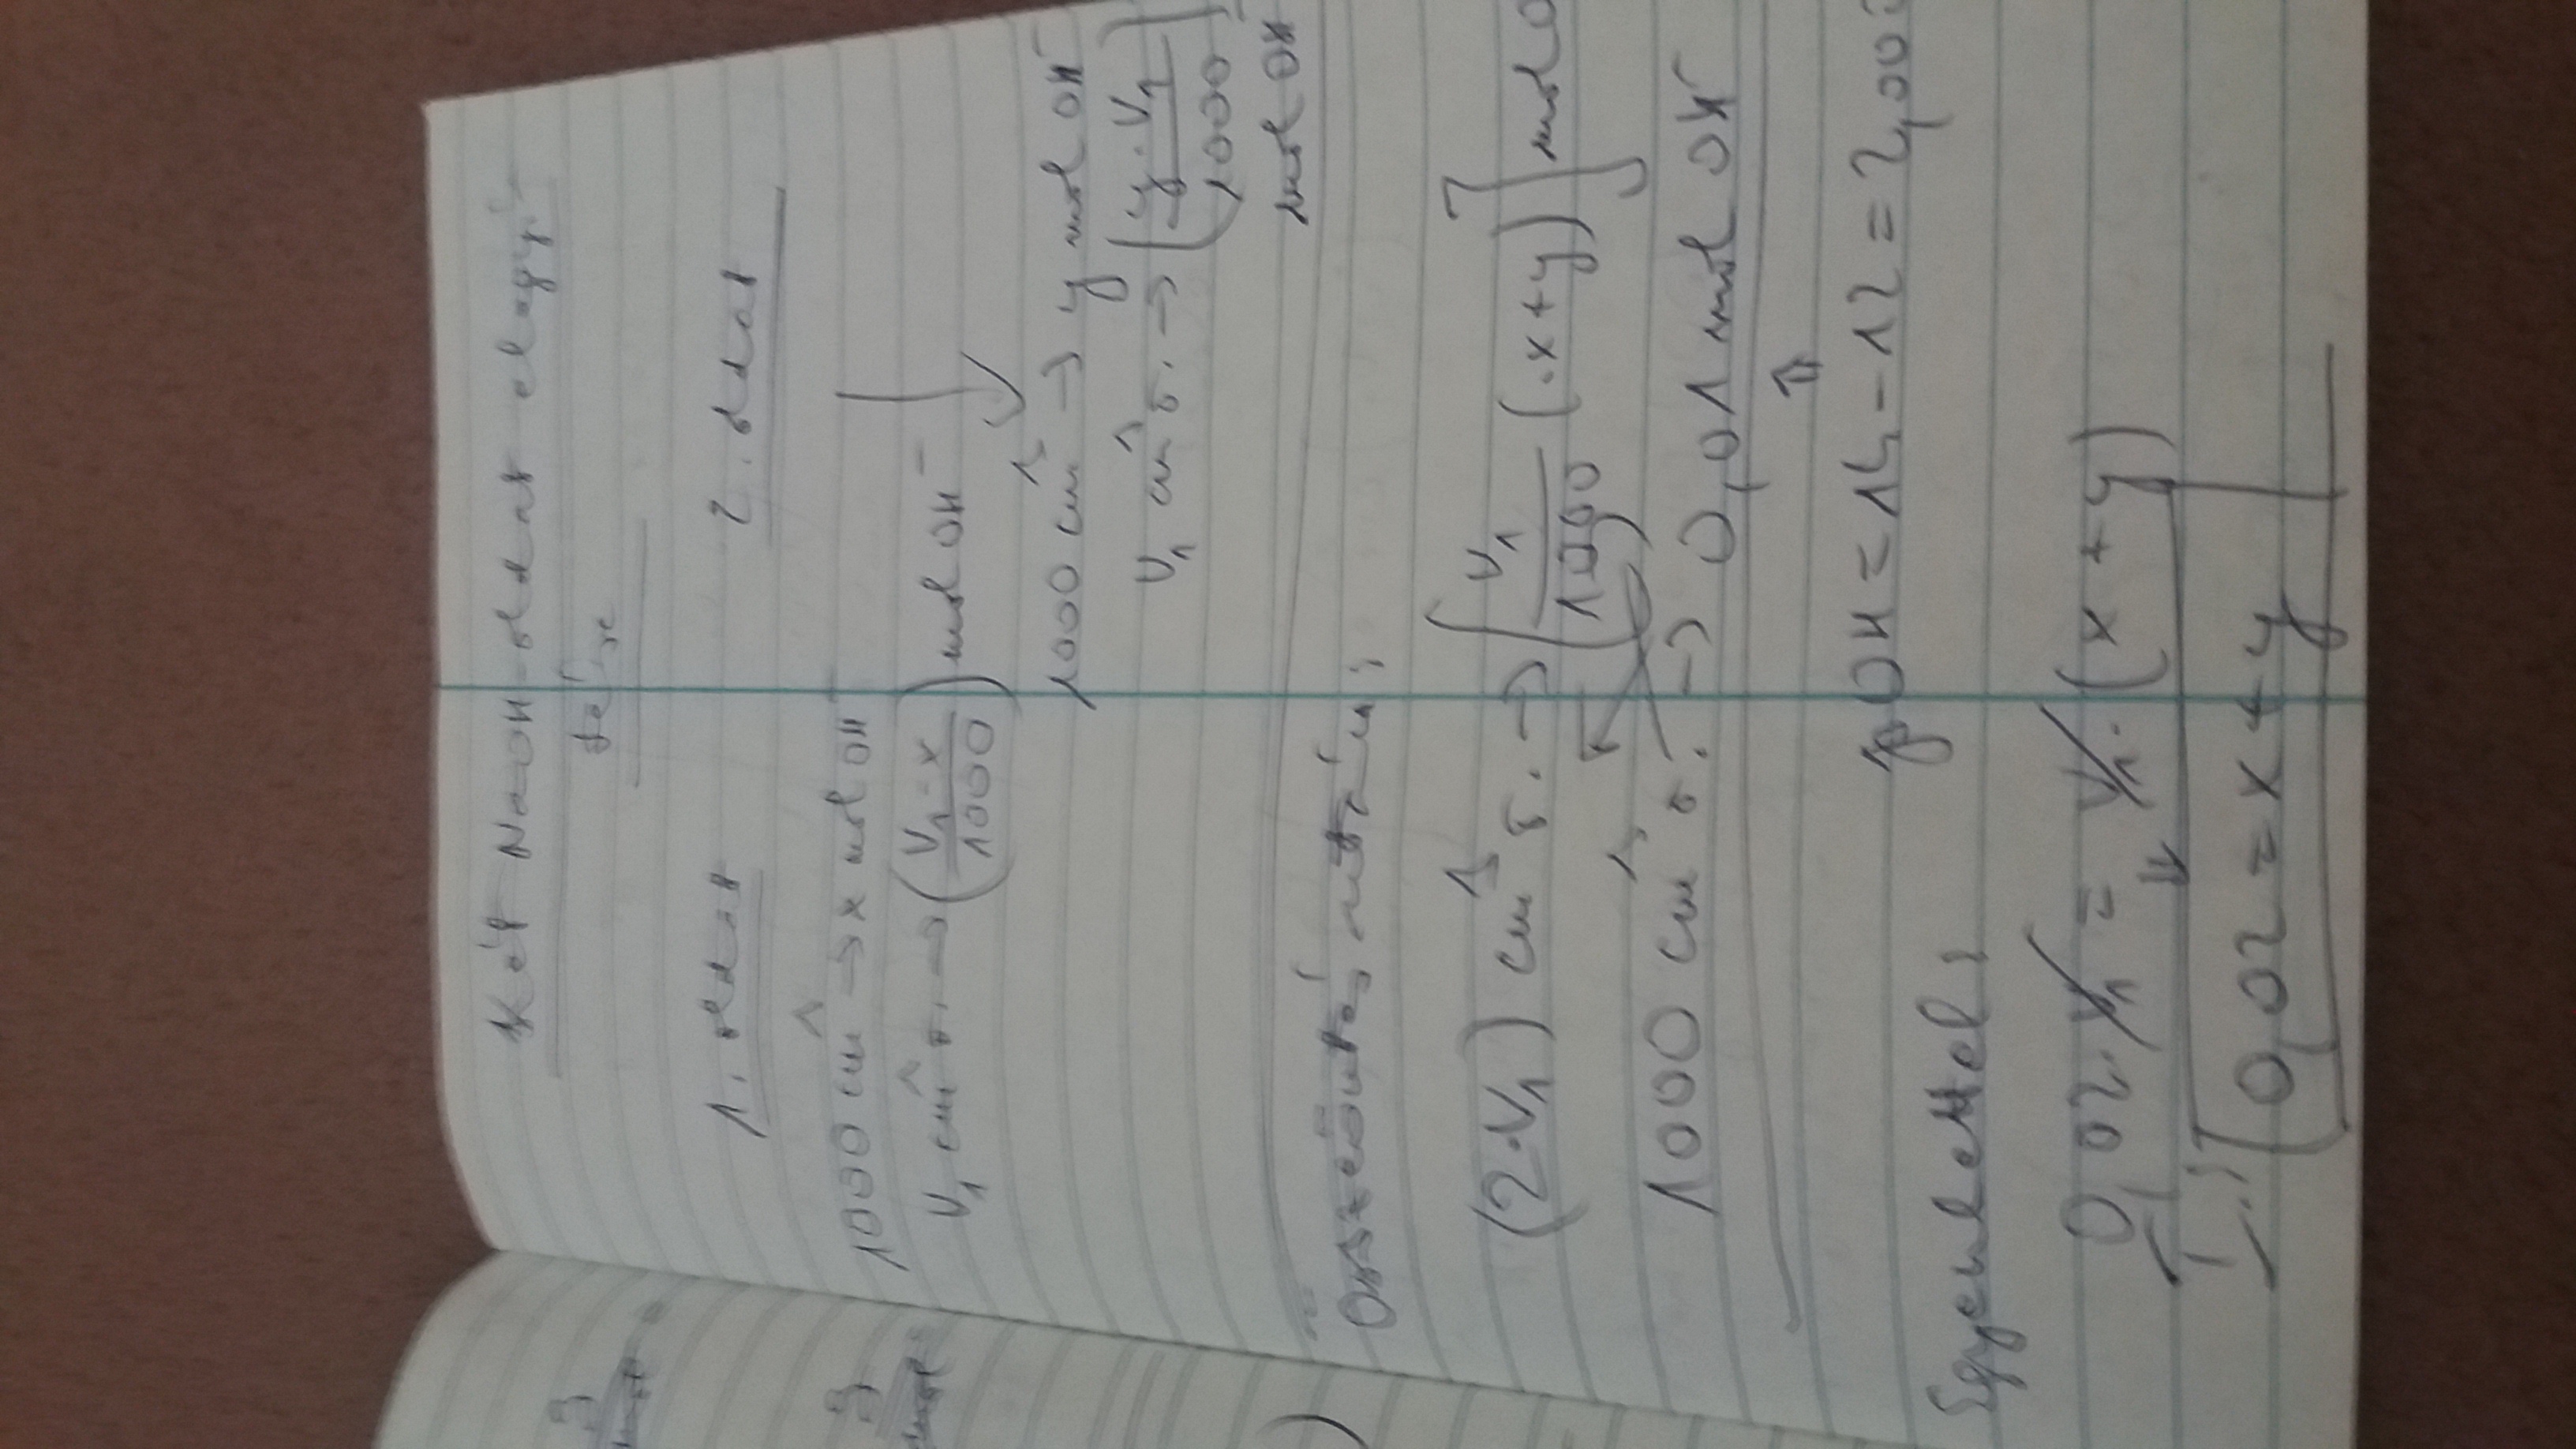 Két NaOH-oldat elegyí-
tése
1. oldat 2. oldat
1000 cm³ → x mol OH⁻
V₁ cm³ o. → (V₁·x/1000) mol OH⁻
1000 cm³ → y mol OH⁻
V₁ cm³ o. → (y·V₁/1000)
mol OH⁻
(2·V₁) cm³ o. → [V₁/1000 · (x+y)] mol O
1000 cm³ o. → 0,01 mol OH⁻
⇑
pOH = 14-12 = 2,00
Egyenlettel:
0,02·V₁ = V₁·(x+y)
⇓
I.: 0,02 = x+y